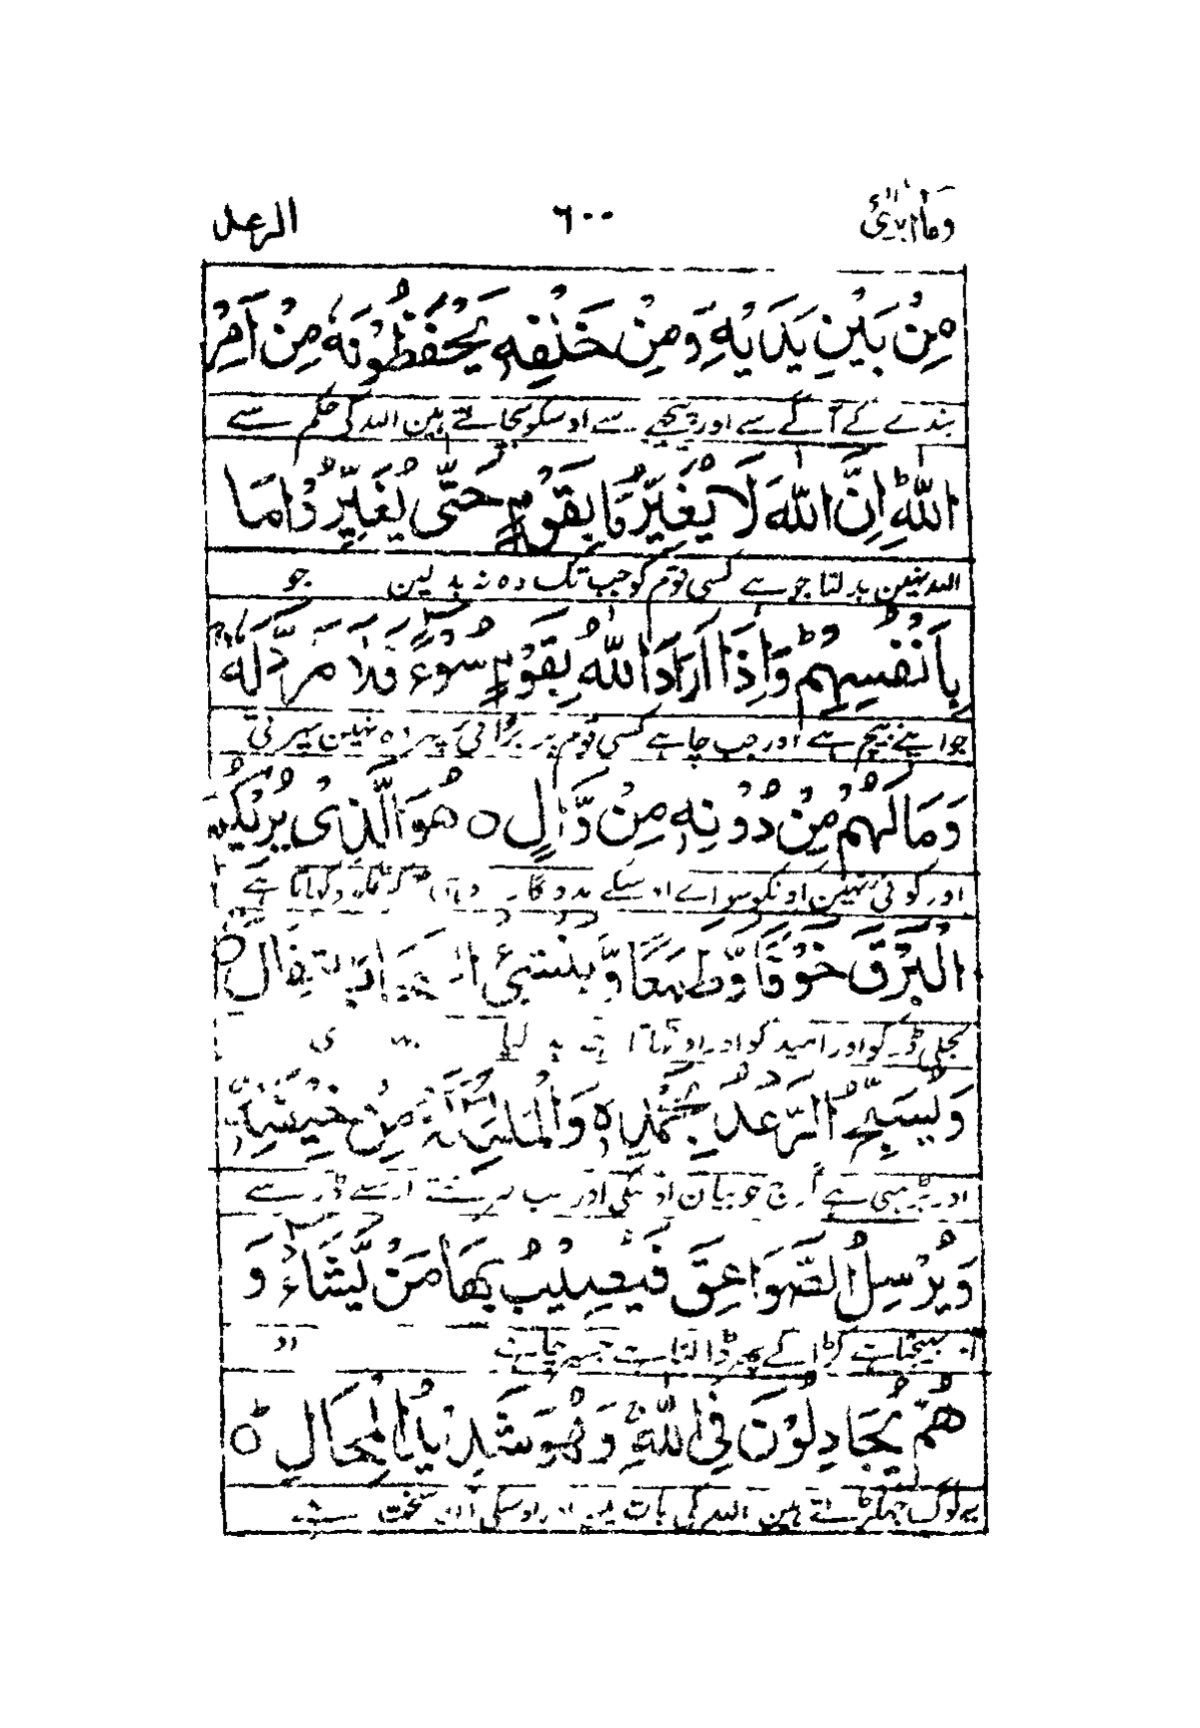 وما ابرئ ٦٠٠ الرعد
مِنْ بَيْنِ يَدَيْهِ وَمِنْ خَلْفِهٖ يَحْفَظُوْنَهٗ مِنْ اَمْرِ
بندے کے آگے سے اور پیچھے سے اوسکو بچاتے ہین اللہ کی حکم سے
اللّٰهِ ؕ اِنَّ اللّٰهَ لَا يُغَيِّرُ مَا بِقَوْمٍ حَتّٰى يُغَيِّرُوْا مَا
اللہ نہین بدلتا جو ہے کسی قوم کو جب تک وہ نہ بدلین جو
بِاَنْفُسِهِمْ ؕ وَاِذَا اَرَادَ اللّٰهُ بِقَوْمٍ سُوْٓءًا فَلَا مَرَدَّ لَهٗ
جو اپنے بیچ ہے اور جب چاہے کسی قوم پر برائی پھر وہ نہین پھرتی
وَمَا لَهُمْ مِنْ دُوْنِهٖ مِنْ وَّالٍ ۝ هُوَ الَّذِىْ يُرِيْكُمُ
اور کوئی نہین اونکو سواے اوسکے مددگار وہی ہے کہ تمکو دکھاتا ہے
الْبَرْقَ خَوْفًا وَّطَمَعًا وَّيُنْشِئُ السَّحَابَ الثِّقَالَ ۝
بجلی ڈر کو اور امید کو اور اوٹھاتا ہے
وَيُسَبِّحُ الرَّعْدُ بِحَمْدِهٖ وَالْمَلٰٓئِكَةُ مِنْ خِيْفَتِهٖ
اور پڑہتی ہے گرج خوبیان اوسکی اور سب فرشتے اسکے ڈر سے
وَيُرْسِلُ الصَّوَاعِقَ فَيُصِيْبُ بِهَا مَنْ يَّشَآءُ وَ
بھیجتا ہے کڑاکے پھر ڈالتا ہے جسپر چاہے او
هُمْ يُجَادِلُوْنَ فِى اللّٰهِ وَهُوَ شَدِيْدُ الْمِحَالِ ۝
یہ لوگ جھگڑتے ہین اللہ کی بات مین اور اوسکی سخت ہے